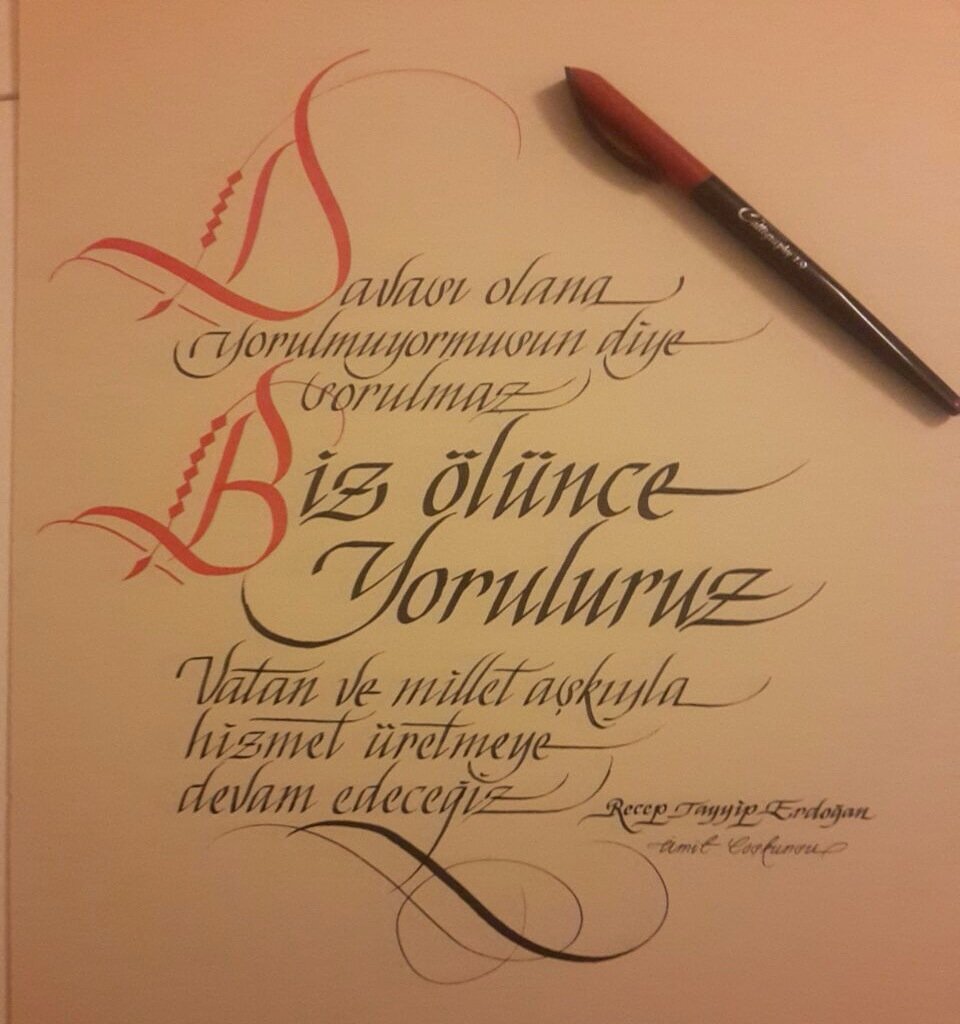 Davası olana
Yorulmuyormusun diye
sorulmaz
Biz ölünce
Yoruluruz
Vatan ve millet aşkıyla
hizmet üretmeye
devam edeceğiz
Recep Tayyip Erdoğan
Ümit